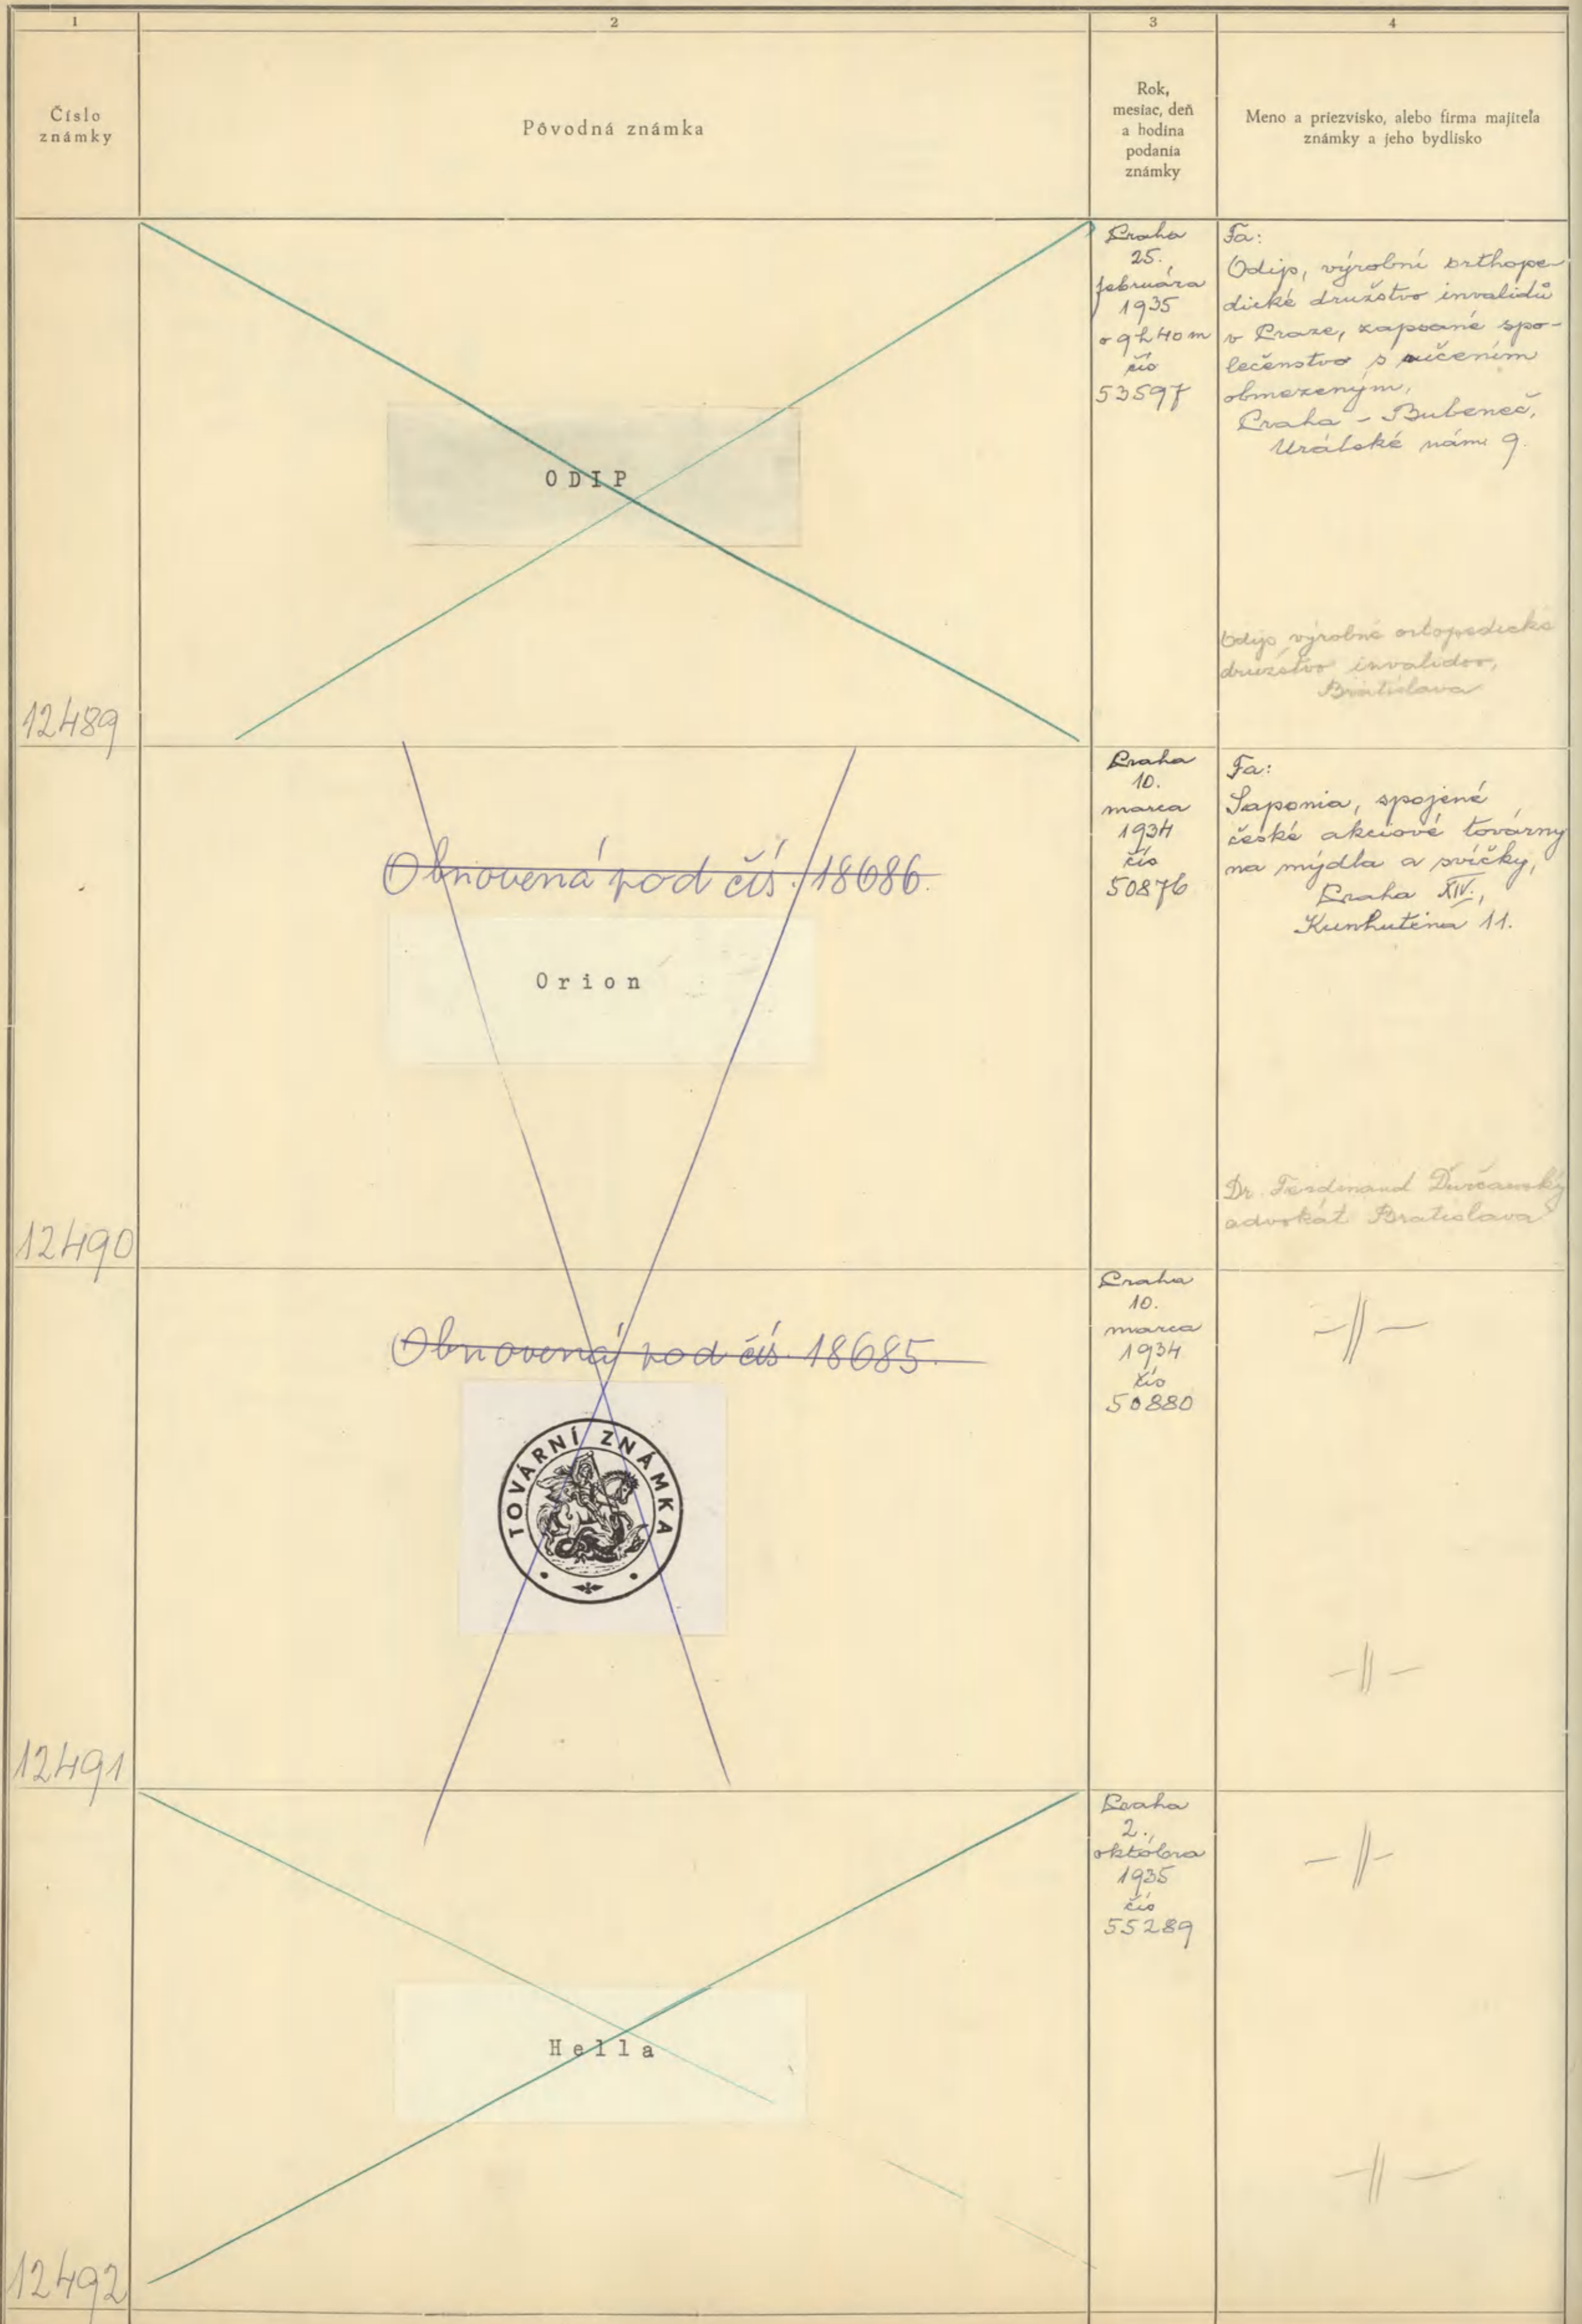 1
2
3
4
Číslo
známky
Pôvodná známka
Rok,
mesiac, deň
a hodina
podania
známky
Meno a priezvisko, alebo firma majiteľa
známky a jeho bydlisko
12489
ODIP
Praha
25.
februára
1935
o 9h 40m
čís
53597
Fa:
Odip, výrobní orthope-
dické družstvo invalidů
v Praze, zapsané spo-
lečenstvo s ručením
obmezeným,
Praha - Bubeneč,
Uralské nám. 9.
Odip výrobné ortopedické
družstvo invalidov,
Bratislava
12490
Obnovená pod čís. 18686.
Orion
Praha
10.
marca
1934
čís
50876
Fa:
Saponia, spojené
české akciové továrny
na mýdla a svíčky,
Praha XIV.,
Kunhutina 11.
Dr. Ferdinand Ďurčanský
advokát Bratislava
12491
Obnovená pod čís. 18685.
TOVÁRNÍ ZNÁMKA
Praha
10.
marca
1934
čís
50880
-//-
-//-
12492
Hella
Praha
2.
októbra
1935
čís
55289
-//-
-//-